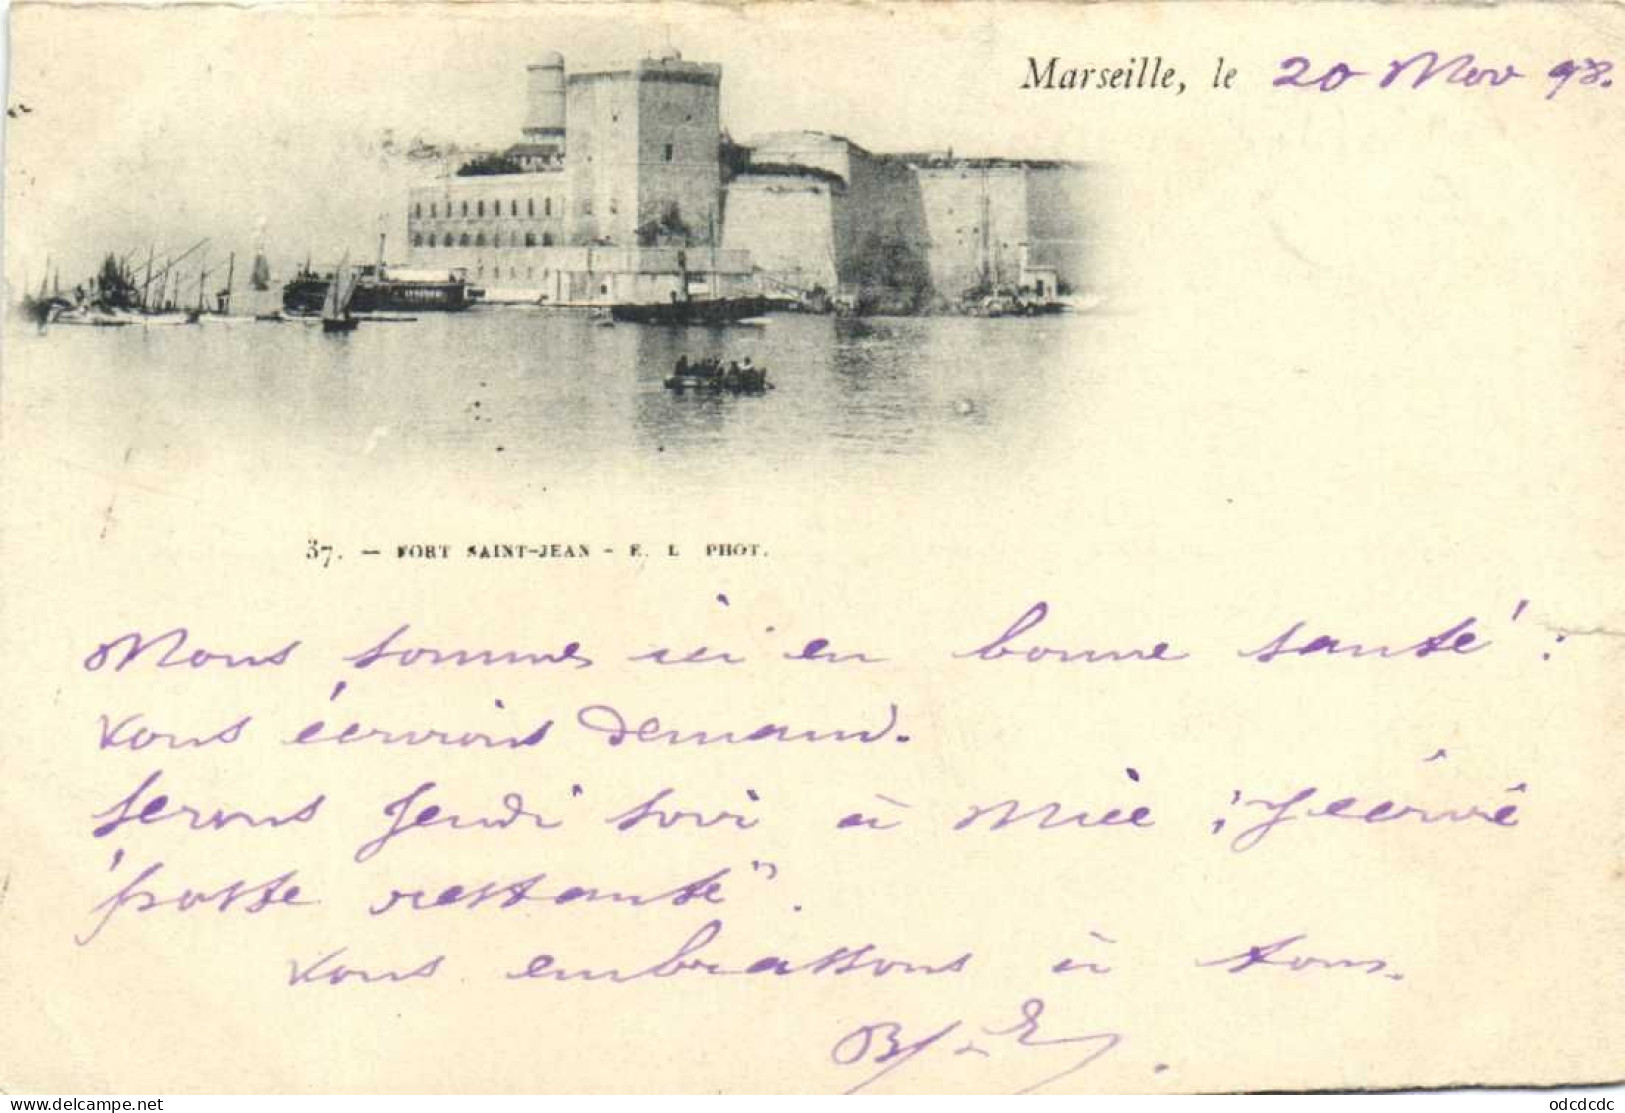 Marseille, le 20 Nov 98.
37. — FORT SAINT-JEAN - E. L PHOT.
Nous sommes ici en bonne santé :
vous écrirons demain.
Serons Jeudi soir à Nice ; J écrire
"poste restante".
Vous embrassons à tous.
delcampe.net
odcdcdc